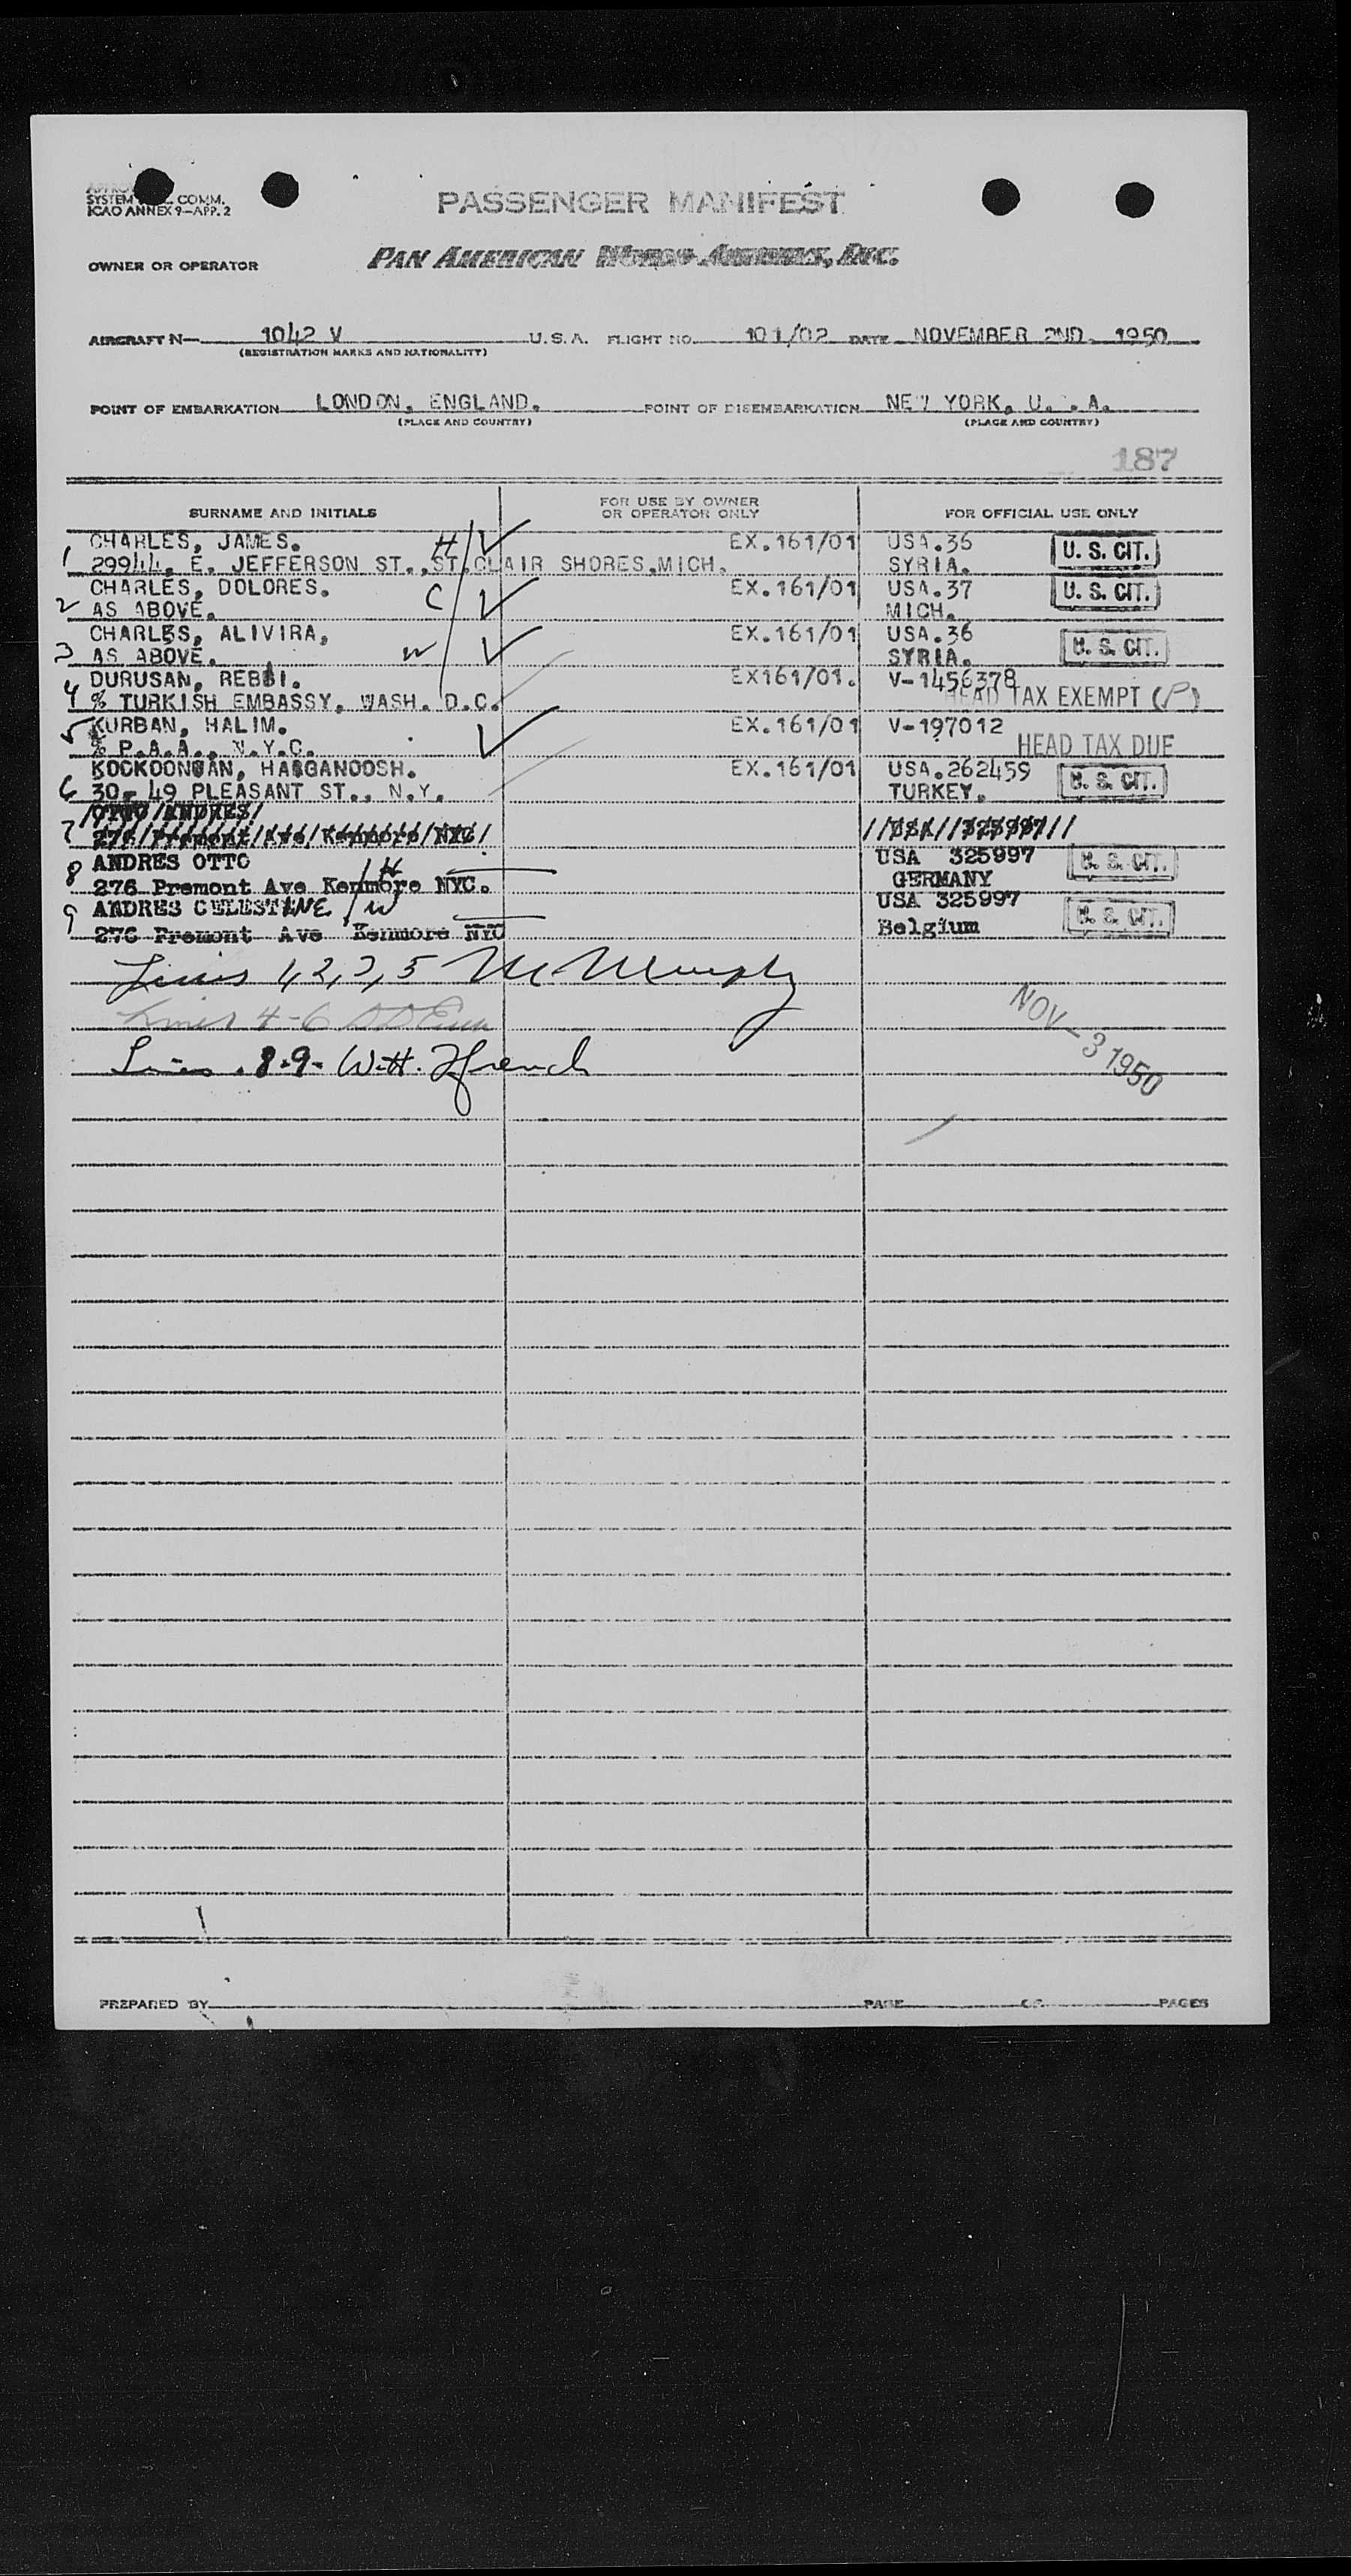 SYSTEM COMM.
ICAO ANNEX 9-APP. 2
PASSENGER MANIFEST
OWNER OR OPERATOR PAN AMERICAN WORLD AIRWAYS, INC.
AIRCRAFT N- 1042 V U.S.A. FLIGHT NO. 101/02 DATE NOVEMBER 2ND. 1950
(REGISTRATION MARKS AND NATIONALITY)
POINT OF EMBARKATION LONDON, ENGLAND. POINT OF DISEMBARKATION NEW YORK, U. . A.
(PLACE AND COUNTRY) (PLACE AND COUNTRY)
187
SURNAME AND INITIALS FOR USE BY OWNER OR OPERATOR ONLY FOR OFFICIAL USE ONLY
CHARLES, JAMES. H EX.161/01 USA.36 U. S. CIT.
1 29944, E. JEFFERSON ST.,ST.CLAIR SHORES,MICH. SYRIA.
CHARLES, DOLORES. C EX.161/01 USA.37 U. S. CIT.
2 AS ABOVE. MICH.
CHARLES, ALIVIRA, W EX.161/01 USA.36 U. S. CIT.
3 AS ABOVE. SYRIA.
DURUSAN, REBBI. EX161/01. V-1456378
4 % TURKISH EMBASSY, WASH. D.C. HEAD TAX EXEMPT (P)
5 KURBAN, HALIM. EX.161/01 V-197012
% P.A.A., N.Y.C. HEAD TAX DUE
KOOKOONGAN, HAGGANOOSH. EX.161/01 USA.262459 U. S. CIT.
6 30- 49 PLEASANT ST., N.Y. TURKEY.
/OTTO/ANDRES/
7 276/Premont/Ave/Kenmore/NYC/ //USA//325997//
ANDRES OTTO USA 325997 U. S. CIT.
8 276 Premont Ave Kenmore NYC. H GERMANY
9 ANDRES CELESTINE W USA 325997 U. S. CIT.
276 Premont Ave Kenmore NYC Belgium
Lines 1,2,3,5 M Murphy
Lines 4-6
Lines 8-9- W.H. French
NOV -3 1950
PREPARED BY PAGE OF PAGES